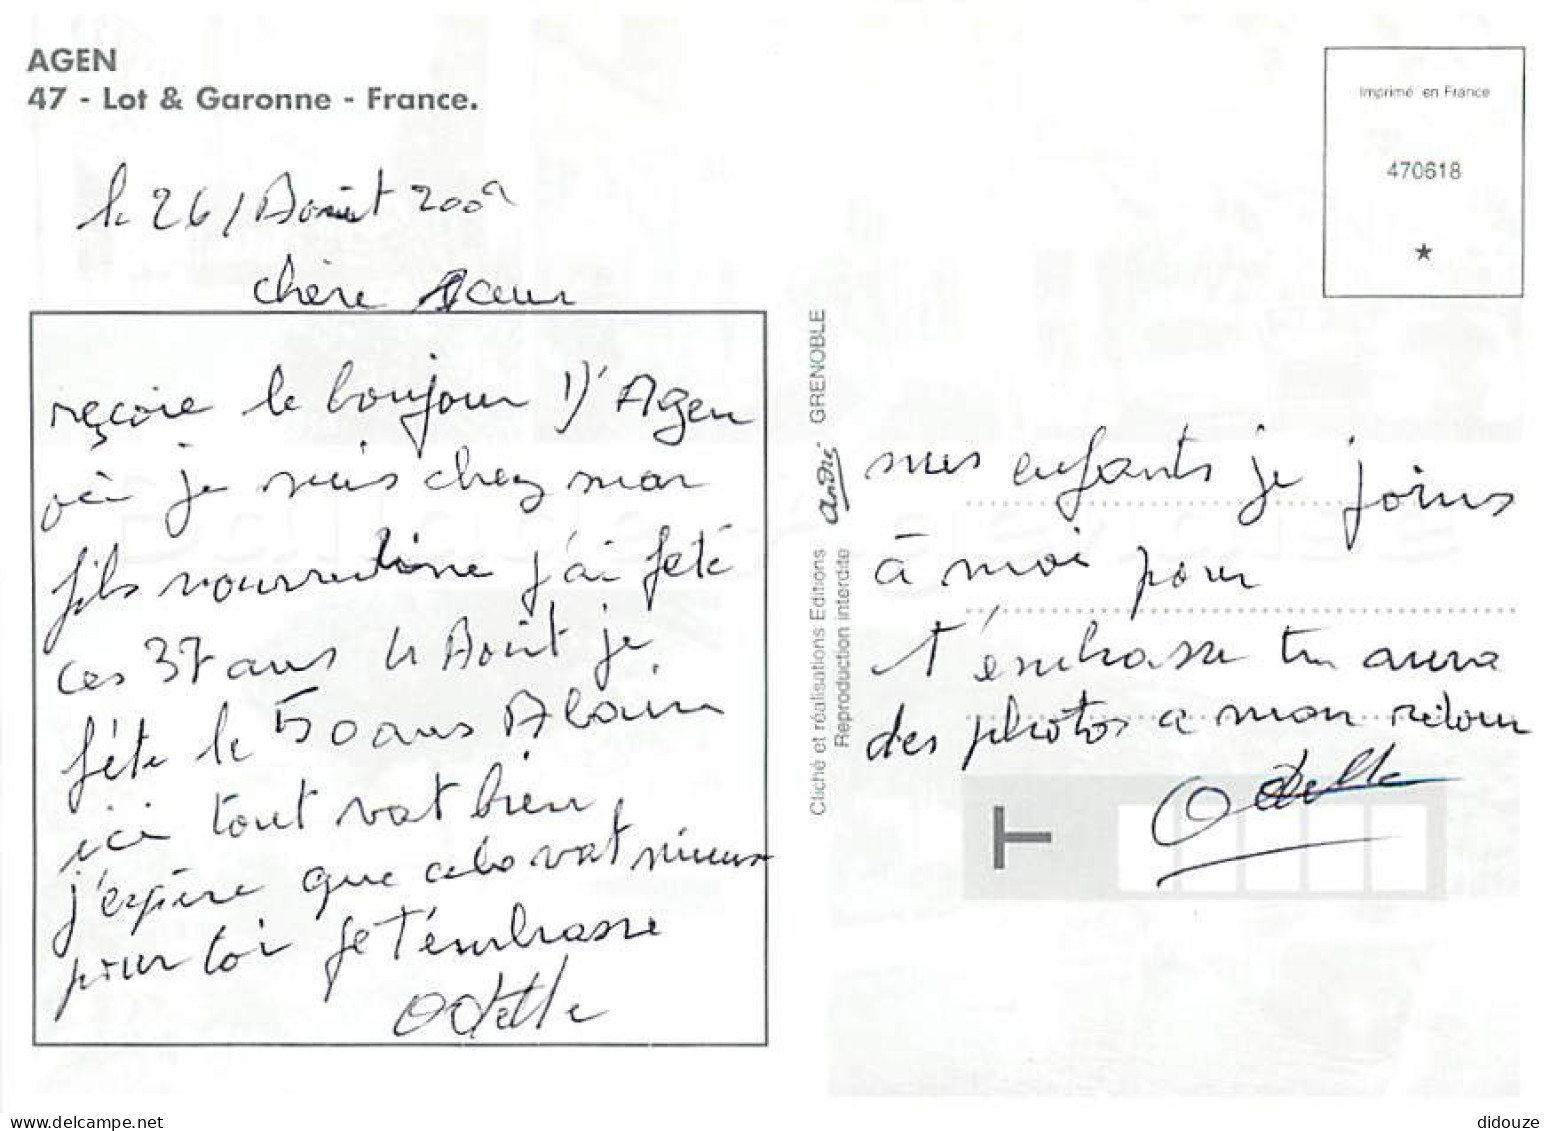 AGEN
47 - Lot & Garonne - France.
le 26/Août 2002
chère sœur
reçoie le boujour D'Agen
où je suis chez mon
fils nourredine j'ai fété
ces 37 ans le Août je
féte le 50 ans Alain
ici tout vat bien
j'éspère que cela vat mieux
pour toi je t'émbrasse
Odette
Imprimé en France
470618
★
Cliché et réalisations Editions André GRENOBLE
Reproduction interdite
mes enfants je joins
à moi pour
t'émbrasse tu aura
des photos a mon retour
Odette
T
delcampe.net
didouze